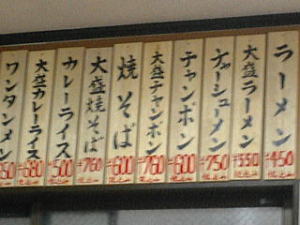 ラーメン
¥450
大盛ラーメン
¥550
チャーシューメン
¥750
チャンポン
¥600
大盛チャンポン
¥760
焼そば
¥600
大盛焼そば
¥760
カレーライス
¥500
大盛カレーライス
¥680
ワンタンメン